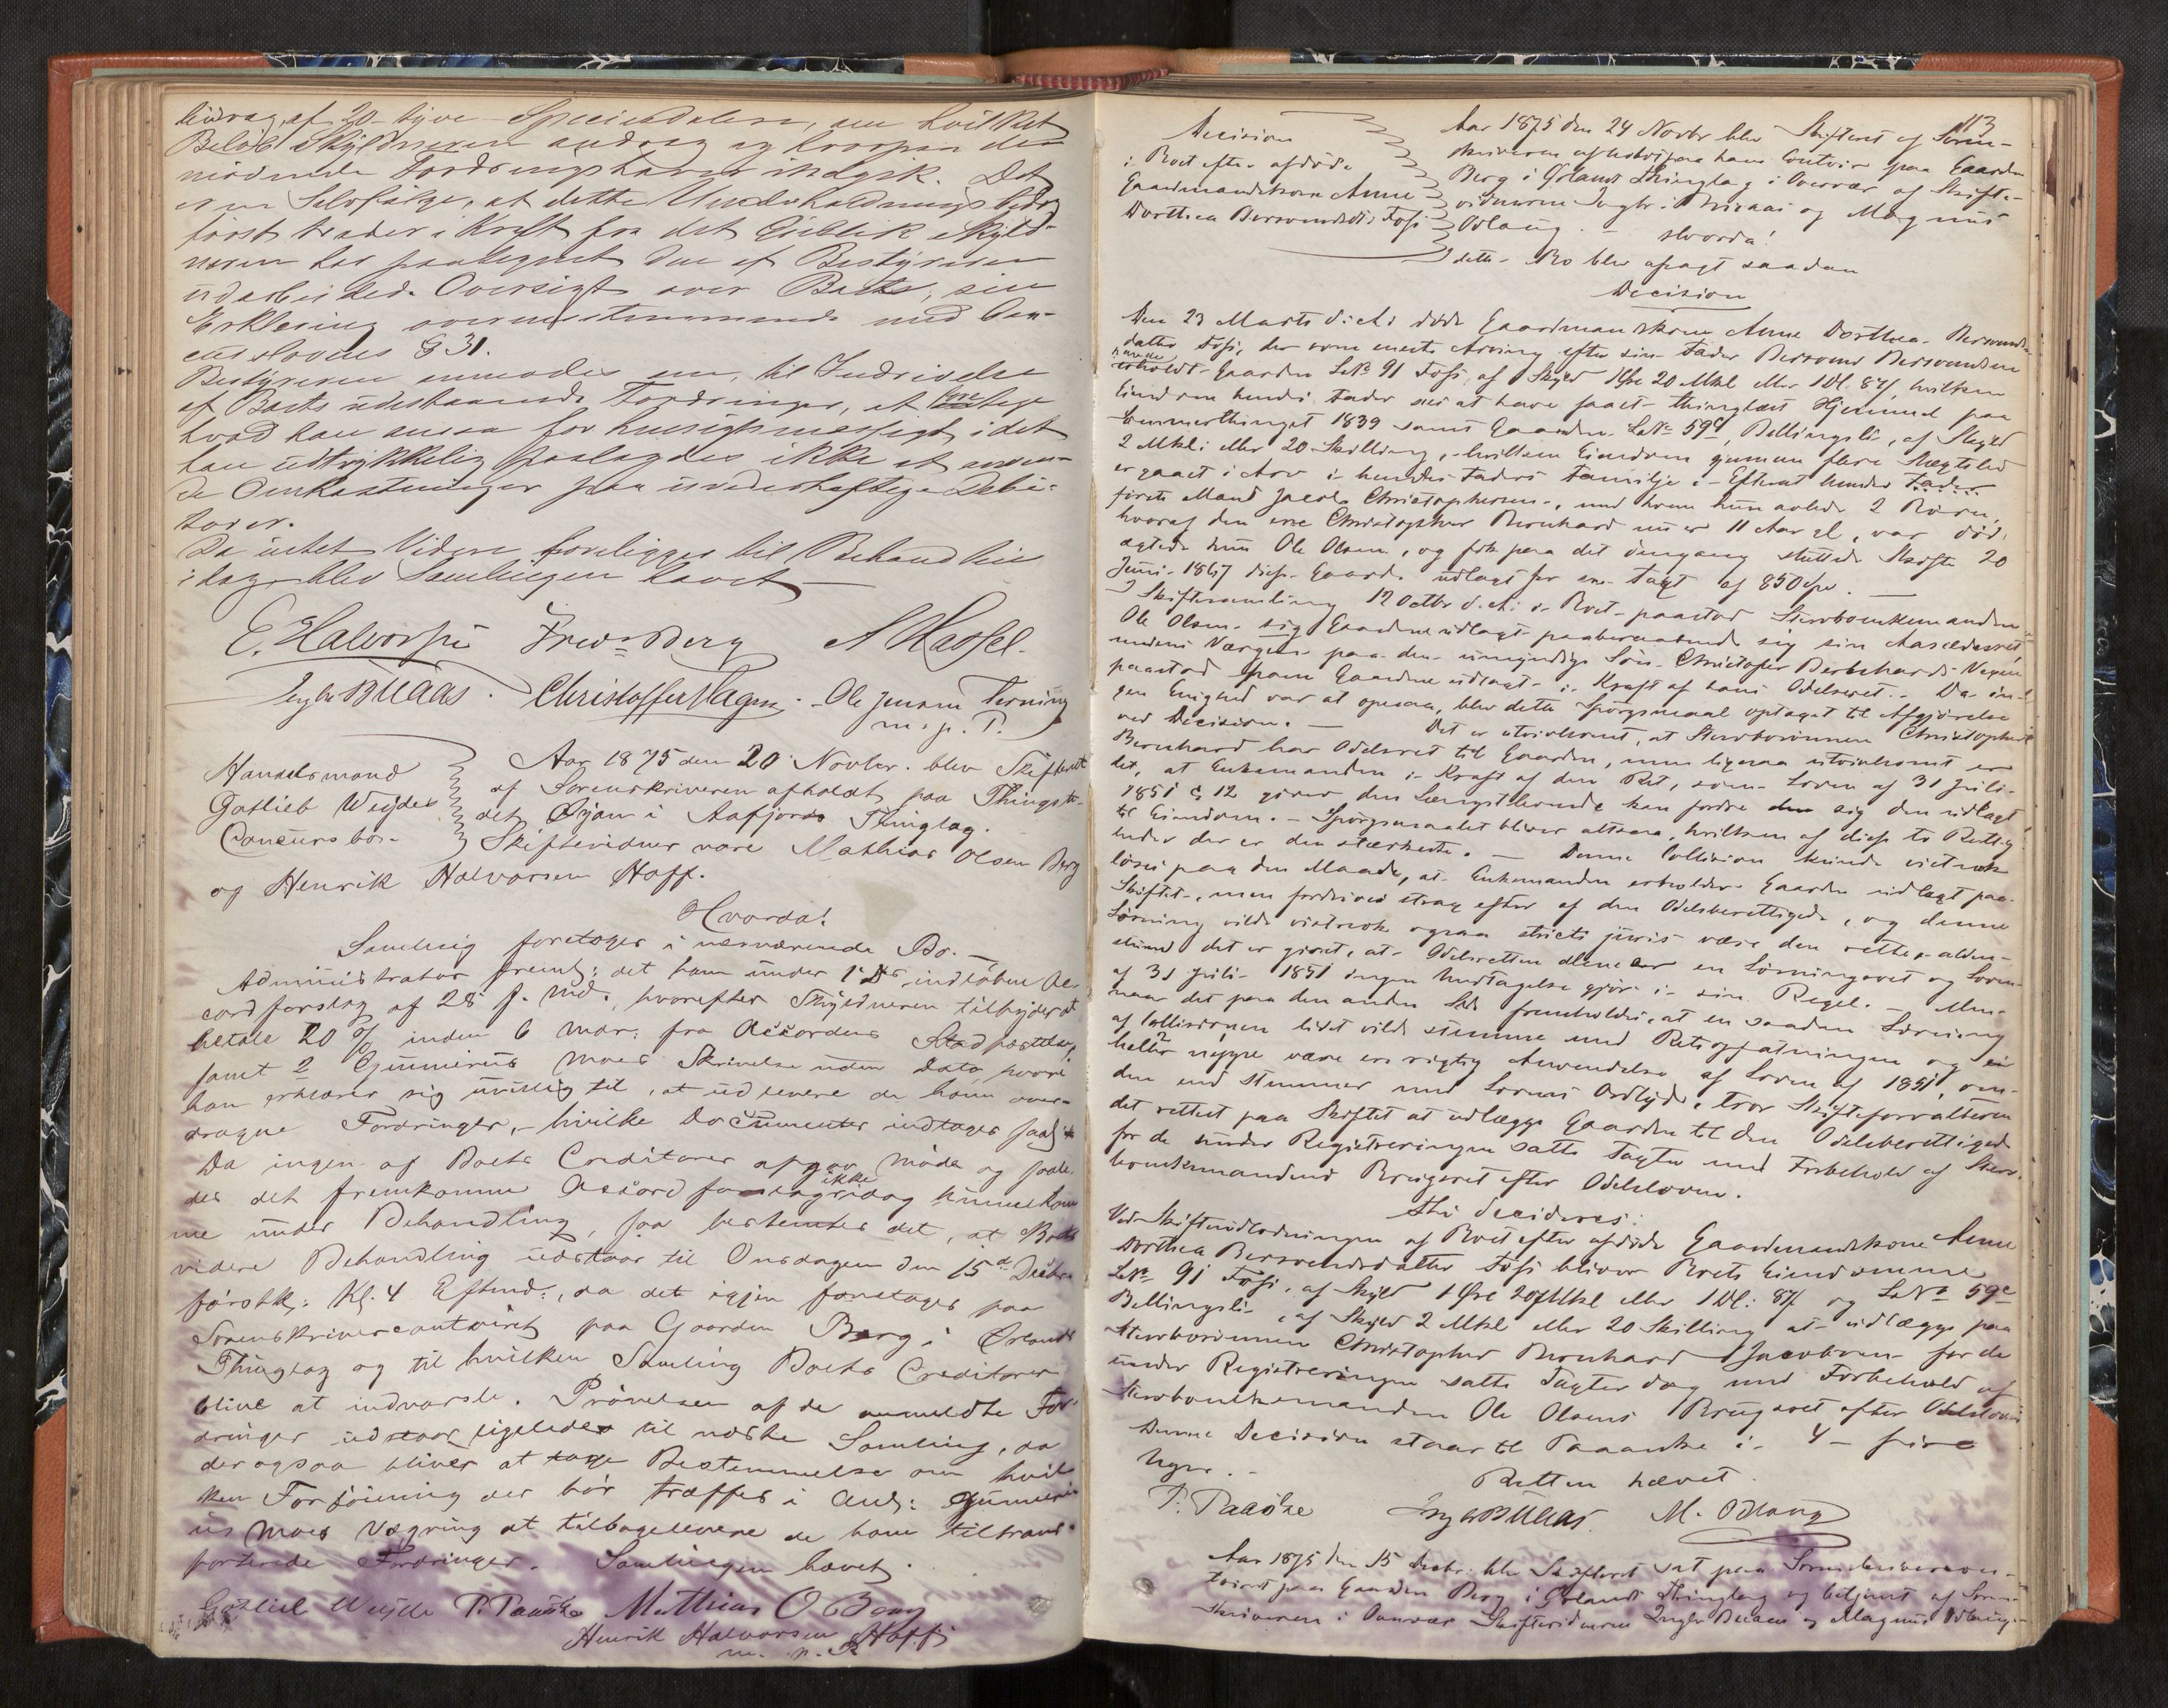 bidrag af 20 - tyve Speciedaler, om hvilket
Beløb Skyldneren androg og hvorpaa de
mødende Fordringshavere indgik. Det
er en Selvfølge, at dette Underholdningsbidrag
først træder i Kraft fra det Øieblik Skyld-
neren har paategnet den af Bestyreren
udarbeidede Oversigt over Boets, sin
Erklæring overensstemmende med Con-
curslovens § 31.
Bestyreren anmodes om, til Inddrivelse
af Boets udestaaende Fordringer, at foretage
hvad han ansaa for hensigtsmæssigt, idet
han udtrykkelig paalagdes ikke at anven-
de Omkostninger paa uvederheftige Debi-
torer.
Da intet Videre foreligger til Behandling
idag blev Samlingen hævet
E. Halvorsen Fredr Berg A Hassel.
Ingbr BUaas. Christoffer Hagen. Ole Jensen Terning
m. p. P.
Handelsmand
Gotlieb Weydes
Concursbo.
Aar 1875 den 20 Novbr. blev Skifteret
af Sorenskriveren afholdt paa Thingste-
det Årjan i Aafjords Thinglag.
Skiftevidner vare Mathias Olsen Berg
og Henrik Halvorsen Hoff.
Hvorda!
Samling foretoges i nærværende Bo.
Administrator freml: det ham under 1 Ds indløbne Ac-
cordforslag af 28 f. Md., hvorefter Skyldneren tilbyder at
betale 20 % inden 6 Mdr: fra Accordens Stadfæstelse,
samt 2 Gunnerius Moes Skrivelse uden Dato, hvori
han erklærer sig uvillig til, at udlevere de ham over-
dragne Fordringer, - hvilke Documenter indtages saal:
Da ingen af Boets Creditorer afgav Møde og saale-
des det fremkomne Accordforslag idag ikke kunde kom
me under Behandling, saa bestemtes det, at Boets
videre Behandling udstaar til Onsdagen den 15de Decbr
førstk: Kl. 4 Eftmd:, da det igjen foretages paa
Sorenskrivercontoiret paa Gaarden Berg i Ørlands
Thinglag og til hvilken Samling Boets Creditorer
blive at indvarsle. Prøvelsen af de anmeldte For-
dringer udstaar ligeledes til næste Samling, da
der ogsaa bliver at tage Bestemmelse om hvil
ken Forføining der bør træffes i Anl: Gunneri-
us Moes Vægring at tilbagelevere de ham tiltrans-
porterede Fordringer. Samlingen hævet.
Gotlieb Weyde P. Paaske Mathias O Berg
Henrik Halvorsen Hoff
m. p. P.
113
Decision
i Boet efter afdøde
Gaardmandskone Anne
Dorthea Bersvendsdtr Foss
Aar 1875 den 24 Novbr blev Skifteret af Soren-
skriveren afholdt paa hans Contoir paa Gaarden
Berg i Ørlands Thinglag i Overvær af Skifte-
vidnerne Ingbr: BUaas og Magnus
Odlaug. hvorda!
i dette Bo blev afsagt saadan
Decision
Den 23 Marts d: A: døde Gaardmandskone Anne Dorthea Bersvends-
datter Foss, der som eneste Arving efter sin Fader Bersvend Bersvendsen
havde
erholdt Gaarden LNo 91 Foss, af Skyld 1 Øre 20 Mkl eller 1 Dl. 87, hvilken
Eiendom hendes Fader sees at have faaet thinglæst Hjemmel paa
Sommerthinget 1839 samt Gaarden LNo 59c, Bellingsli, af Skyld
2 Mkl: eller 20 Skilling, hvilken Eiendom gjennem flere Slægtsled
er gaaet i Arv i hendes Faders Familje. - Efterat hendes Fader
første Mand Jacob Christophersen, med hvem hun avlede 2 Børn,
hvoraf den ene Christopher Bernhard nu er 11 Aar gl, var død,
ægtede hun Ole Olsen, og fik paa det dengang sluttede Skifte 20
Juni 1867 disse Gaarde udlagt for en Taxt af 850 Spd.
I Skiftesamling 12 Octbr d. A: i Boet paastod Sterboenkemanden
Ole Olsen sig Gaardene udlagt paaberaabende sig sin Aasædesret,
medens Værgen paa den umyndige Søn Christopher Bernhards Vegne
paastod ham Gaardene udlagt i Kraft af hans Odelsret. - Da in-
gen Enighed var at opnaa, blev dette Spørgsmaal optaget til Afgjørelse
ved Decision. - Det er utvivlsomt, at Sterbosønnen Christopher
Bernhard har Odelsret til Gaarden, men ligesaa utvivlsomt er
det, at Enkemanden i Kraft af den Ret, som Loven af 31 Juli
1851 § 12 giver den Længstlevende kan fordre sig den udlagt
til Eiendom. - Spørgsmaalet bliver altsaa, hvilken af disse to Rettig-
heder der er den stærkeste. - Denne Collision kunde vistnok
løses paa den Maade, at Enkemanden erholder Gaarden udlagt paa
Skiftet, men fordrives strax efter af den Odelsberettigede, og denne
Løsning vilde vistnok ogsaa stricti juris være den rette, alden-
stund det er givet, at Odelsretten alene er en Løsningsret og Loven
af 31 Juli 1851 ingen Undtagelse gjør i sin Regel. - Men
naar det paa den anden Side fremholdes, at en saadan Løsning
af Collisionen lidet vilde stemme med Retsopfatningen og ei
heller neppe være en rigtig Anvendelse af Loven af 1851, om
den end stemmer med Lovens Ordlyd, tror Skifteforvalteren
det rettest paa Skiftet at udlægge Gaarden til den Odelsberettigede
for de under Registreringen satte Taxter med Forbehold af Sterv-
boenkemandens Brugsret efter Odelsloven.
Thi decideres:
Ved Skifteudlodningen af Boet efter afdøde Gaardmandskone Anne
Dorthea Bersvendsdatter Foss bliver Boets Eiendomme
LNo 91 Foss, af Skyld 1 Øre 20 Mkl eller 1 Dl: 87 og LNo 59c
Bellingsli, af Skyld 2 Mkl eller 20 Skilling at udlægge paa
Stervbosønnen Christopher Bernhard Jacobsen for de
under Registreringen satte Taxter dog med Forbehold af
Stervboenkemanden Ole Olsens Brugsret efter Odelsloven
Denne Decision staar til Paaanke i 4 - fire
Uger.
Retten hævet.
P. Paaske Ingbr BUaas. M. Odlaug
Aar 1875 den 15 Decbr. blev Skifteret sat paa Sorenskrivercon-
toiret paa Gaarden Berg i Ørlands Thinglag og betjent af Soren-
skriveren i Overvær Skiftevidnerne Ingbr BUaas og Magnus Odlaug.